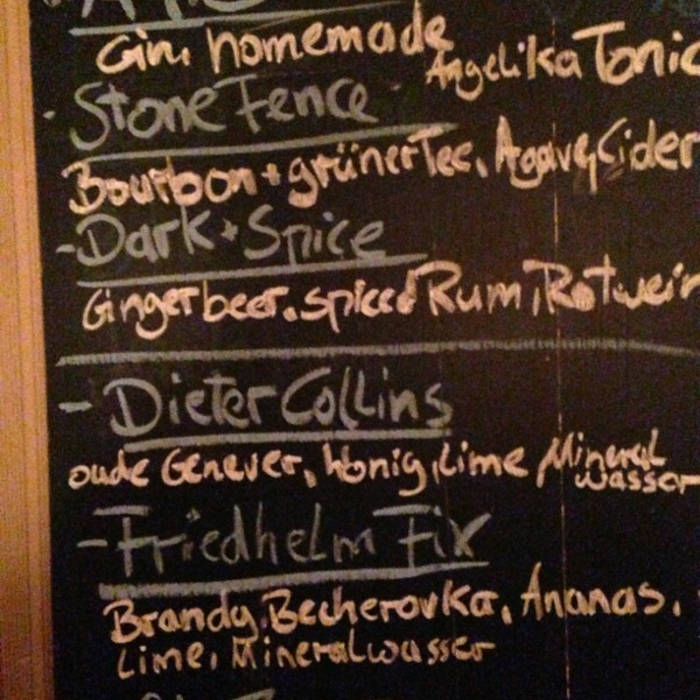 Gin, homemade Angelika Tonic
- Stone Fence
Bourbon + grüner Tee, Agave, Cider
- Dark + Spice
Gingerbeer. spiced Rum, Rotwein
- Dieter Collins
oude Genever, Honig, Lime Mineral
wasser
- Friedhelm Fix
Brandy, Becherovka, Ananas,
Lime, Mineralwasser